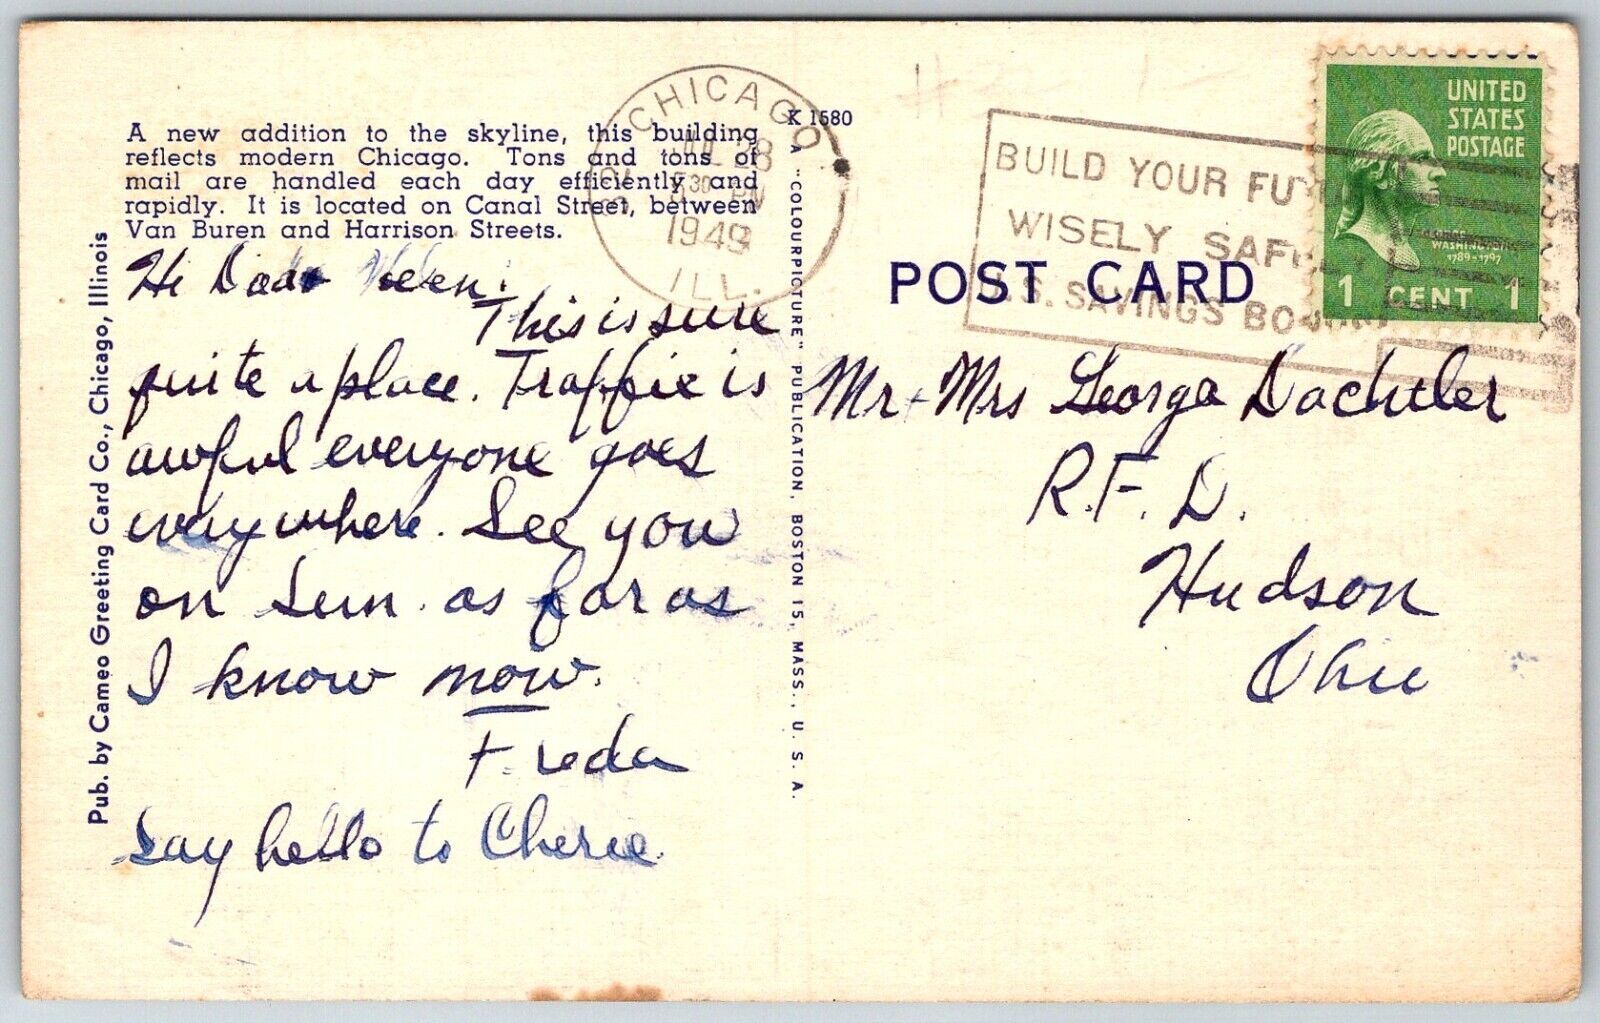 A new addition to the skyline, this building
reflects modern Chicago. Tons and tons of
mail are handled each day efficiently and
rapidly. It is located on Canal Street, between
Van Buren and Harrison Streets.
Hi Dad
This is sure
quite a place. Traffic is
awful everyone goes
everywhere. See you
on Sun. as far as
I know now.
Freda
Say hello to Cherie
Pub. by Cameo Greeting Card Co., Chicago, Illinois
K 1580
A "COLOURPICTURE" PUBLICATION, BOSTON 15, MASS., U. S. A.
CHICAGO
JUL 28
30 PM
1949
ILL.
BUILD YOUR FUT
WISELY SAFELY
U.S. SAVINGS BO
POST CARD
UNITED
STATES
POSTAGE
WASHINGTON
1789-1797
1 CENT 1
Mr + Mrs George Dachtler
R.F.D.
Hudson
Ohio